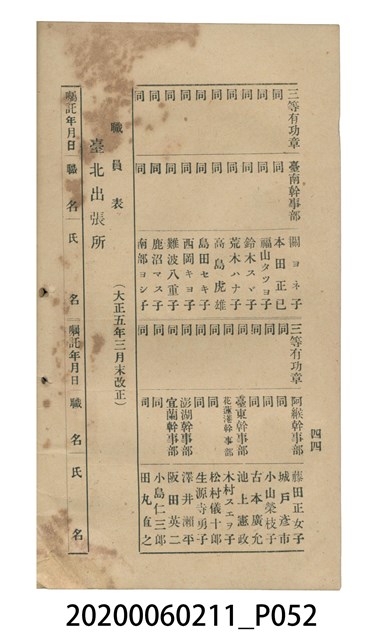 四四
三等有功章 臺南幹事部 關ヨネ子 三等有功章 阿緱幹事部 藤田正女子
同 同 本田正已 同 同 城戸彥市
同 同 福山タツヨ子 同 同 小山榮枝子
同 同 鈴木スマ子 同 同 古本廣允
同 同 荒木ハナ子 同 臺東幹事部 池上憲政
同 同 高島虎雄 同 花蓮港幹事部 木村スエヲ子
同 同 島田セキ子 同 同 松村儀十郎
同 同 西岡キヨ子 同 同 生源寺勇子
同 同 難波八重子 同 澎湖幹事部 澤井瀨平
同 同 鹿沼マス子 同 宜蘭幹事部 阪田英二
同 同 南部ヨシ子 同 同 小島仁三郎
同 田丸直之
職員表 (大正五年三月末改正)
臺北出張所
囑託年月日 職名 氏名 囑託年月日 職名 氏名
20200060211_P052